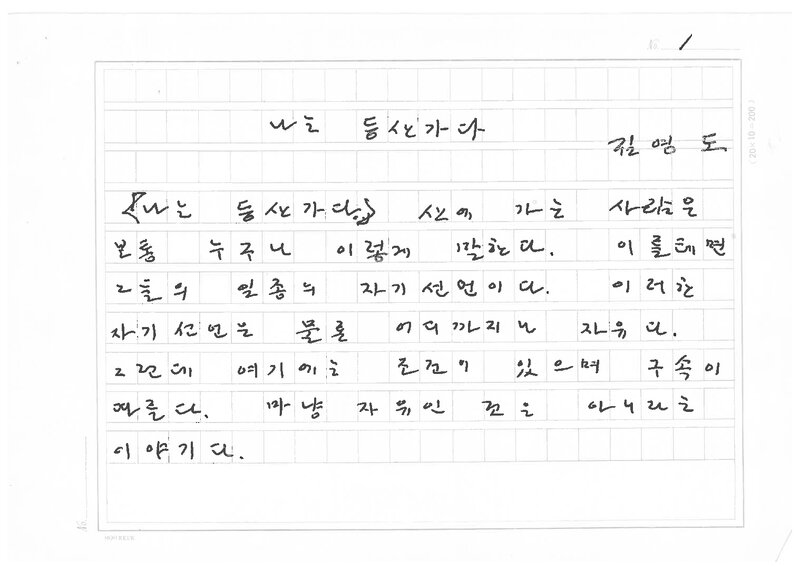 No. 1
나는 등산가다
김영도
〈나는 등산가다〉 산에 가는 사람은
보통 누구나 이렇게 말한다. 이를테면
그들의 일종의 자기 선언이다. 이러한
자기 선언은 물론 어디까지나 자유다.
그런데 여기에는 조건이 있으며 구속이
따른다. 마냥 자유인 것은 아니라는
이야기다.
(20×10=200)
No.